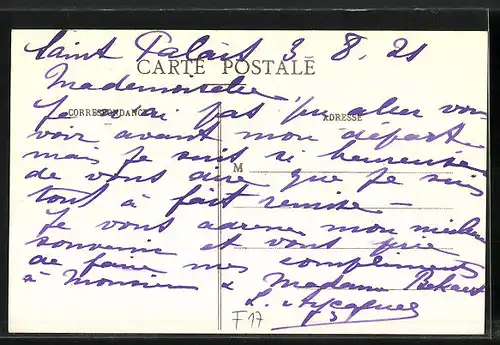 Saint Palais 3. 8. 21
CARTE POSTALE
Mademoiselle
CORRESPONDANCE
ADRESSE
Je n'ai pas pu aller vous
voir avant mon départ
mais je suis si heureuse
M
de vous dire que je suis
tout à fait remise –
Je vous adresse mon meilleur
souvenir et vous prie
de faire mes compliments
à Monsieur & Madame
L.
F17